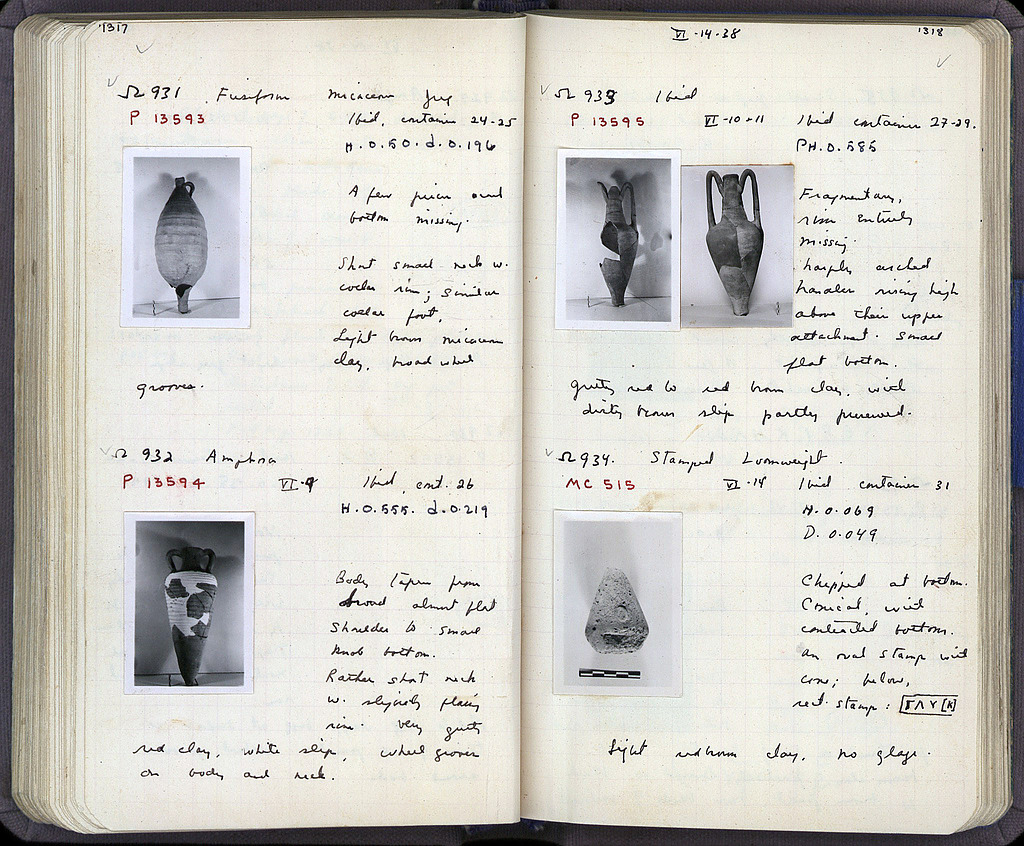 1317
Ω 931 Fusiform micaceous jug
P 13593 Ibid, container 24-25
H. 0.50. d. 0.196
A few pieces and
bottom missing.
Short small neck w.
collar rim; similar
collar foot.
Light brown micaceous
clay, broad wheel
grooves.
Ω 932 Amphora
P 13594 VI-9 Ibid, cont. 26
H. 0.555. d. 0.219
Body tapers from
broad almost flat
shoulder to small
knob bottom.
Rather short neck
w. slightly flaring
rim. Very gritty
red clay, white slip, wheel grooves
on body and neck.
VI-14-38 1318
Ω 933 Ibid
P 13595 VI-10-11 Ibid container 27-29.
PH. 0.585
Fragmentary,
rim entirely
missing.
Sharply arched
handles rising high
above their upper
attachment. Small
flat bottom.
gritty red to red brown clay, with
dirty brown slip partly preserved.
Ω 934. Stamped Loomweight.
MC 515 VI-14 Ibid container 31
H. 0.069
D. 0.049
Chipped at bottom.
Conical, with
contracted bottom.
an oval stamp with
cone; below,
rect. stamp: ΓΛΥ[Κ]
Light redbrown clay, no glaze.